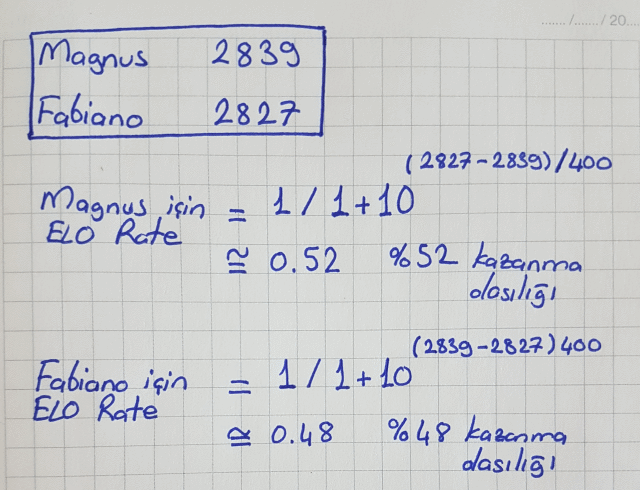 ......./......./20....
Magnus 2839
Fabiano 2827
(2827-2839)/400
Magnus için = 1 / 1+10
ELO Rate
≅ 0.52 %52 kazanma
olasılığı
(2839-2827)400
Fabiano için = 1 / 1+10
ELO Rate
≅ 0.48 %48 kazanma
olasılığı